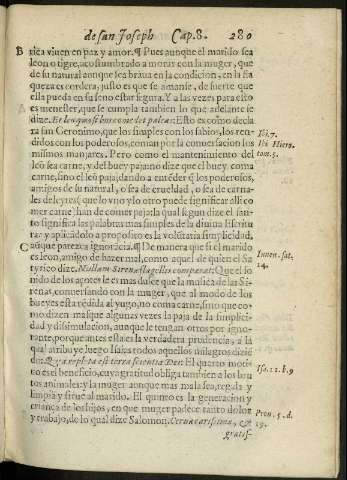 de san Joseph Cap.8. 280
B rica viuen en paz y amor.¶ Pues aunque el marido sea
leon o tigre, acostumbrado a morir con la muger, que
de su natural aunque sea braua en la condicion, en la fla
queza es cordera, justo es que se amanse, de suerte que
ella pueda en su seno estar segura. Y a las vezes para esto
es menester, que se cumpla tambien lo que adelante le
dize. Et leo quasi bos comedet paleas: Esto es como decla
ra san Geronimo, que los simples con los sabios, los ren-
didos con los poderosos, coman por la conuersacion sus
mismos manjares. Pero como el mantenimiento del
leõ sea carne, y del buey paja: no dize que el buey coma
carne, sino el leõ paja; dando a entẽder q̃ los poderosos,
amigos de su natural, o sea de crueldad, o sea de carna-
les deleytes (que lo vno y lo otro puede significar alli co
mer carne) han de comer paja: la qual segun dize el san-
to significa las palabras mas simples de la diuina Escritu
ra: y aplicãdolo a proposito es la volũtaria simplicidad,
C aũque parezca ignorãcia.¶ De manera que si el marido
es leon, amigo de hazer mal, como aquel de quien el Sa
tyrico dize. Nullam Sirena flagellis comparat: Que el so
nido de los açotes le es mas dulce que la musica de las Si-
renas, conuersando con la muger, que al modo de los
bueyes esta rẽdida al yugo, no coma carne, sino que co-
mo dizen masque algunas vezes la paja de la simplici-
dad y dissimulacion, aunque le tengan otros por igno-
rante, porque antes esta es la verdadera prudencia, a la
qual atribuye luego Isaias todos aquellos milagros dizié
do: Quia repleta est terra scientia Dei: El quarto moti-
uo es el beneficio, cuya gratitud obliga tambien a los bru
tos animales: y la muger aunque mas mala sea, regala y
limpia y sirue al marido. El quinto es la generacion y
criança de los hijos, en que muger padece tanto dolor
y trabajo, de lo qual dize Salomon. Cerua carissima, &
gratis-
Ibi.7.
Ibi Hiero.
tom.5.
Iuuen. sat.
14.
Isa.11.b.9
Prou. 5.d.
19.